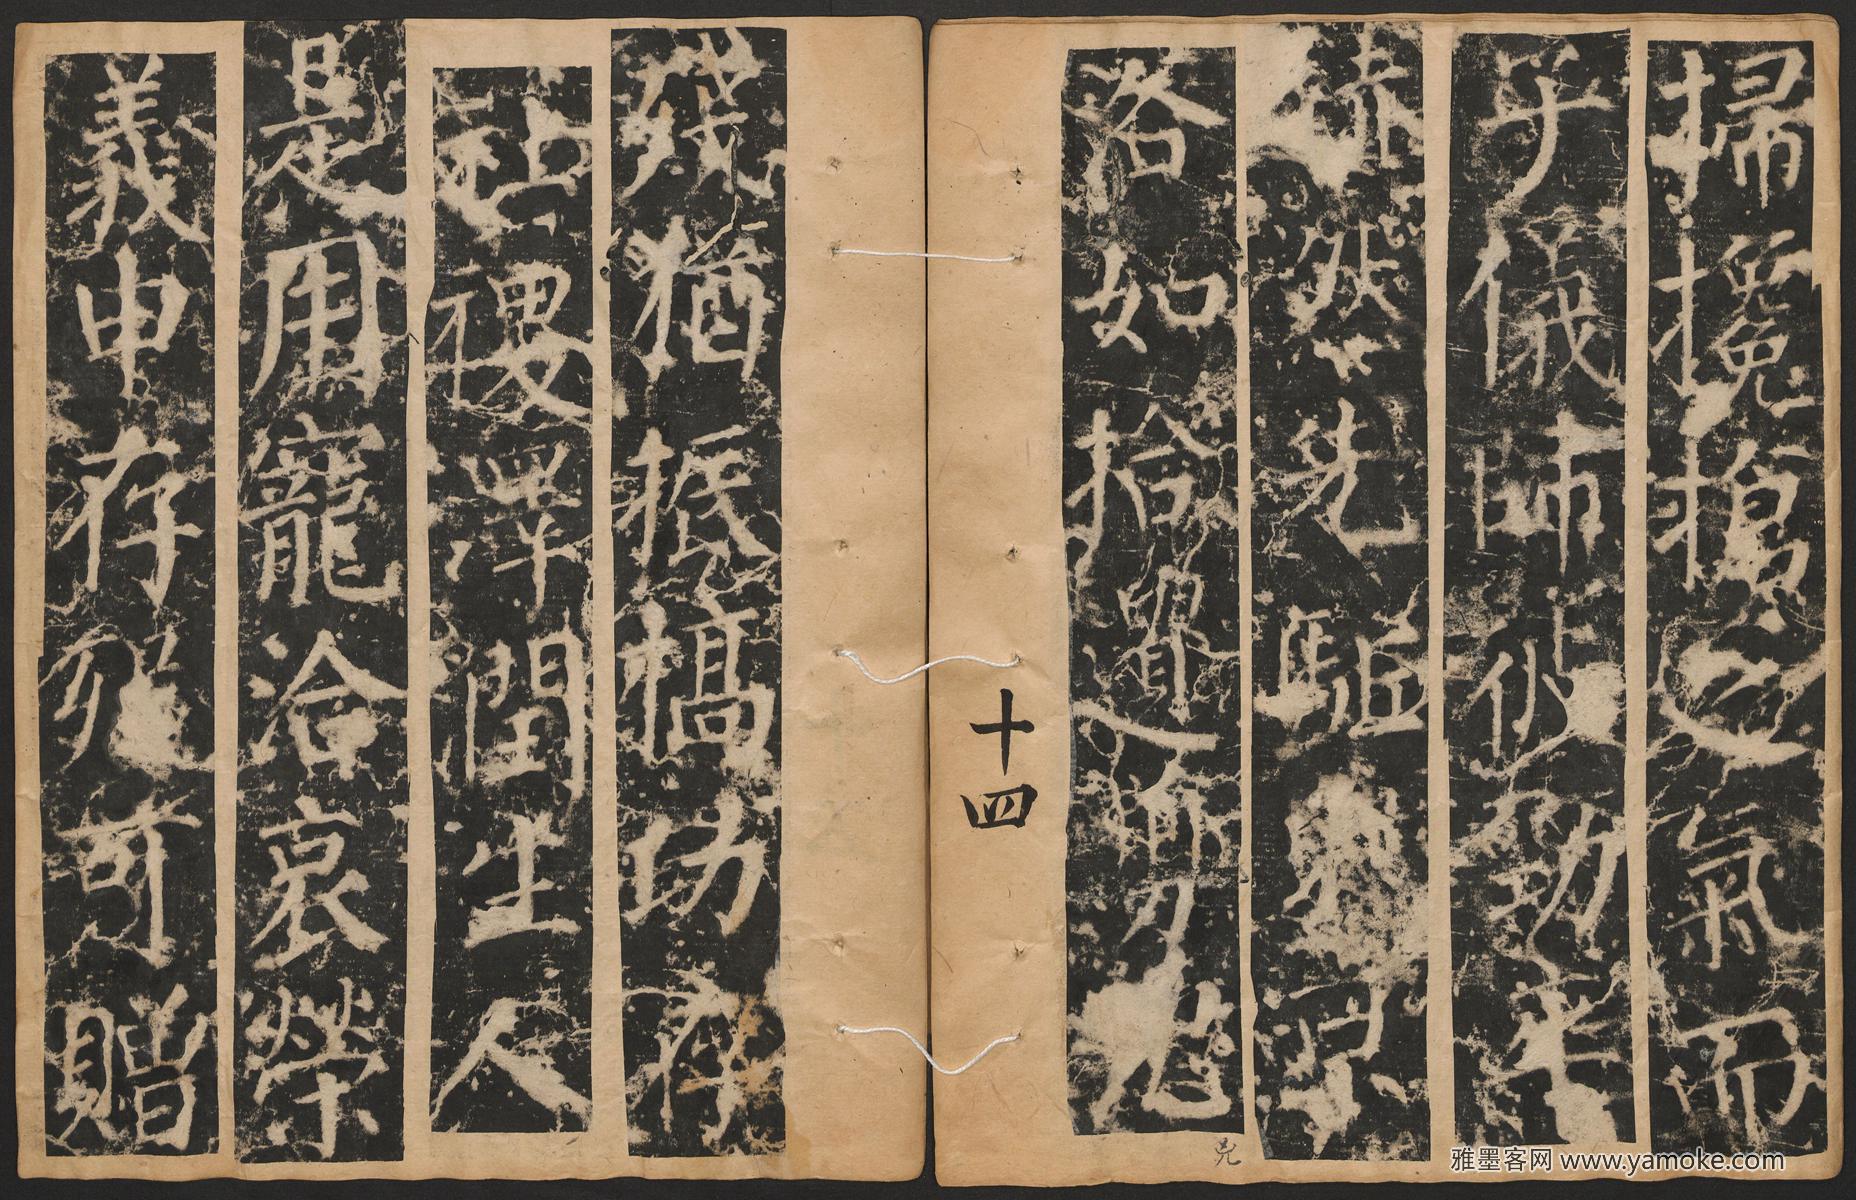 掃攙搶之氣而
子儀帥仗劲
然先驅
洛如拾
殘猶振槁功存
社稷澤潤生人
是用寵洽哀榮
義申存殁可贈
十四
克
雅墨客网 www.yamoke.com